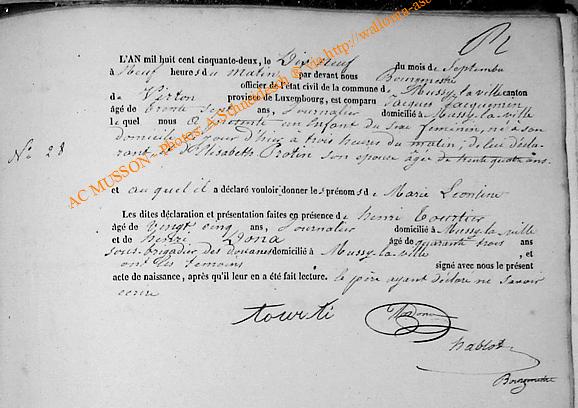 L'AN mil huit cent cinquante-deux, le Dix neuf du mois de Septembre
à Neuf heures du matin par devant nous Bourgmestre
officier de l'état civil de la commune de Mussy-la-ville canton
de Virton province de Luxembourg, est comparu Jacques Jacquemin
âgé de trente sept ans, Journalier domicilié à Mussy-la-ville
lequel nous a présenté un Enfant du sexe féminin, né à son
domicile jour d'hier à trois heures du matin, de lui décla-
rant et d'Elisabeth son epouse âgée de trente quatre ans.
N° 28
et auquel il a déclaré vouloir donner les prénoms de Marie Leontine
Les dites déclaration et présentation faites en présence de henri
âgé de vingt cinq ans, Journalier domicilié à Mussy-la-ville
et de henri âgé de quarante trois ans
sous-brigadier des douanes domicilié à Mussy-la-ville, et
ont les témoins signé avec nous le présent
acte de naissance, après qu'il leur en a été fait lecture. le père ayant déclaré ne savoir
ecrire
tourti
hablot
Bourgmestre
AC MUSSON - Photos. A. Schmickrath © via http://wallonia-asc